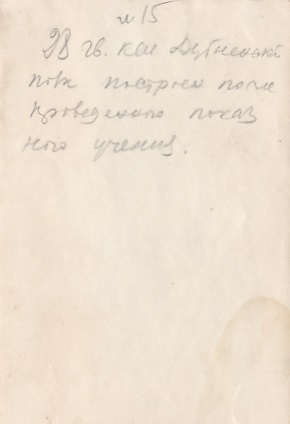 № 15
28 гв. кав Дубненский
полк построен после
проведенного показ
ного учения.